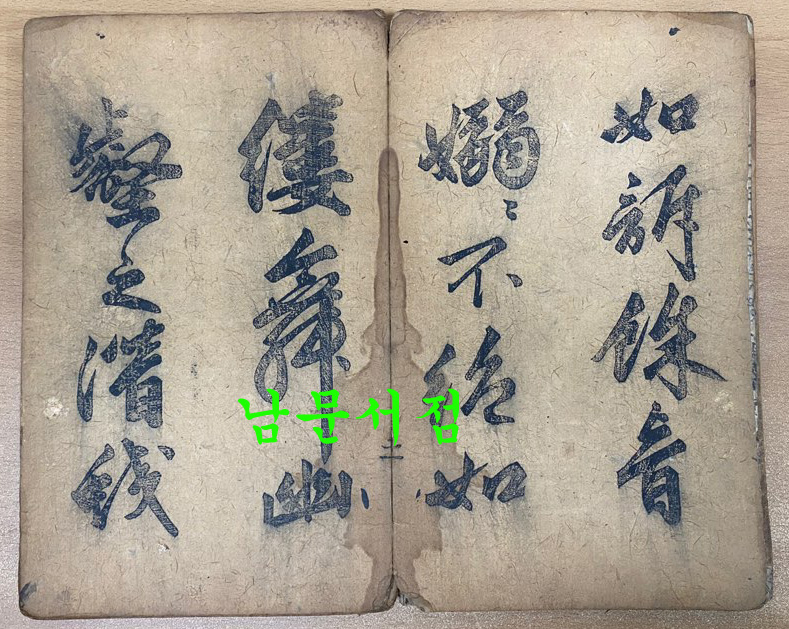 如訴餘音
嫋〻不絶如
縷舞幽
壑之潛蛟
남문서점